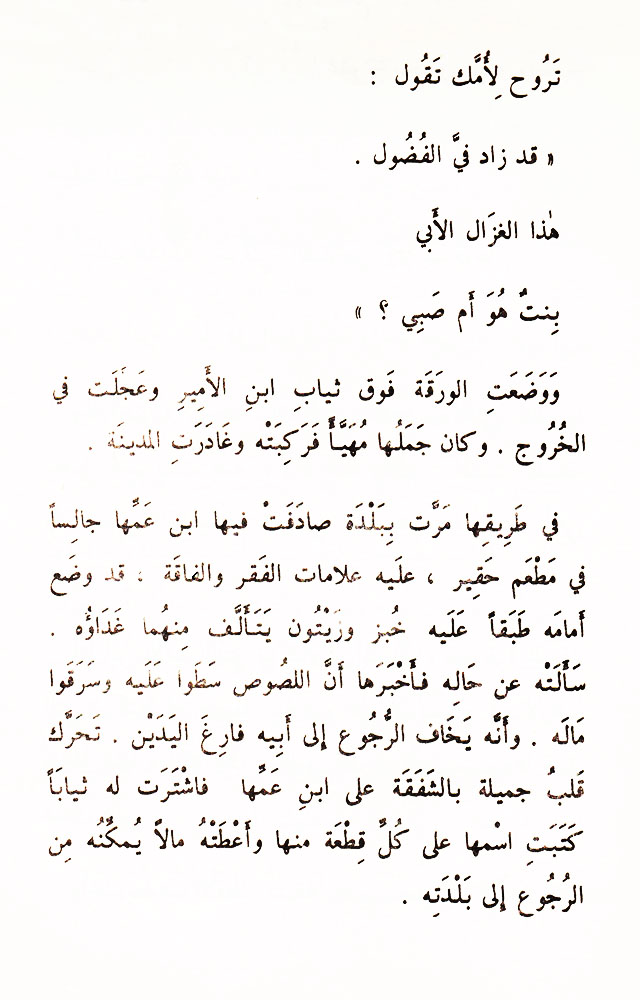 تَرُوح لِأُمَّك تَقُول :
« قد زاد فيَّ الفُضُول .
هٰذا الغزَال الأَبي
بِنتٌ هُوَ أَم صَبِي ؟ »
وَوَضَعَتِ الورَقَة فَوق ثيابِ ابنِ الأَمِيرِ وعَجَلَت في
الخُرُوج . وكان جَمَلُها مُهَيَّأً فَرَكِبَتْه وغَادَرَتِ المدينَة .
في طَرِيقِها مَرَّت بِبَلْدَة صادَفَتْ فيها ابن عَمِّها جالِساً
في مَطْعَم حَقِير ، علَيه علامات الفَقر والفاقَة ، قد وضَع
أَمامَه طَبَقاً عَلَيه خُبز وزَيْتُون يَتَأَلَّف مِنهُما غَدَاؤُه .
سَأَلَتْه عن حَالِه فأَخْبَرَها أَنَّ اللصُوص سَطَوا عَلَيه وسَرَقَوا
مَالَه . وأَنَّه يَخَاف الرُّجُوع إلى أَبِيه فارِغَ اليَدَيْن . تَحَرَّك
قَلبُ جميلة بالشَفَقَة على ابنِ عَمِّها فاشْتَرَت له ثيابَاً
كَتَبَتِ اسْمها على كُلِّ قِطْعَة منها وأَعْطَتْهُ مالاً يُمكِنُه مِن
الرُجُوع إلى بَلْدَتِه .